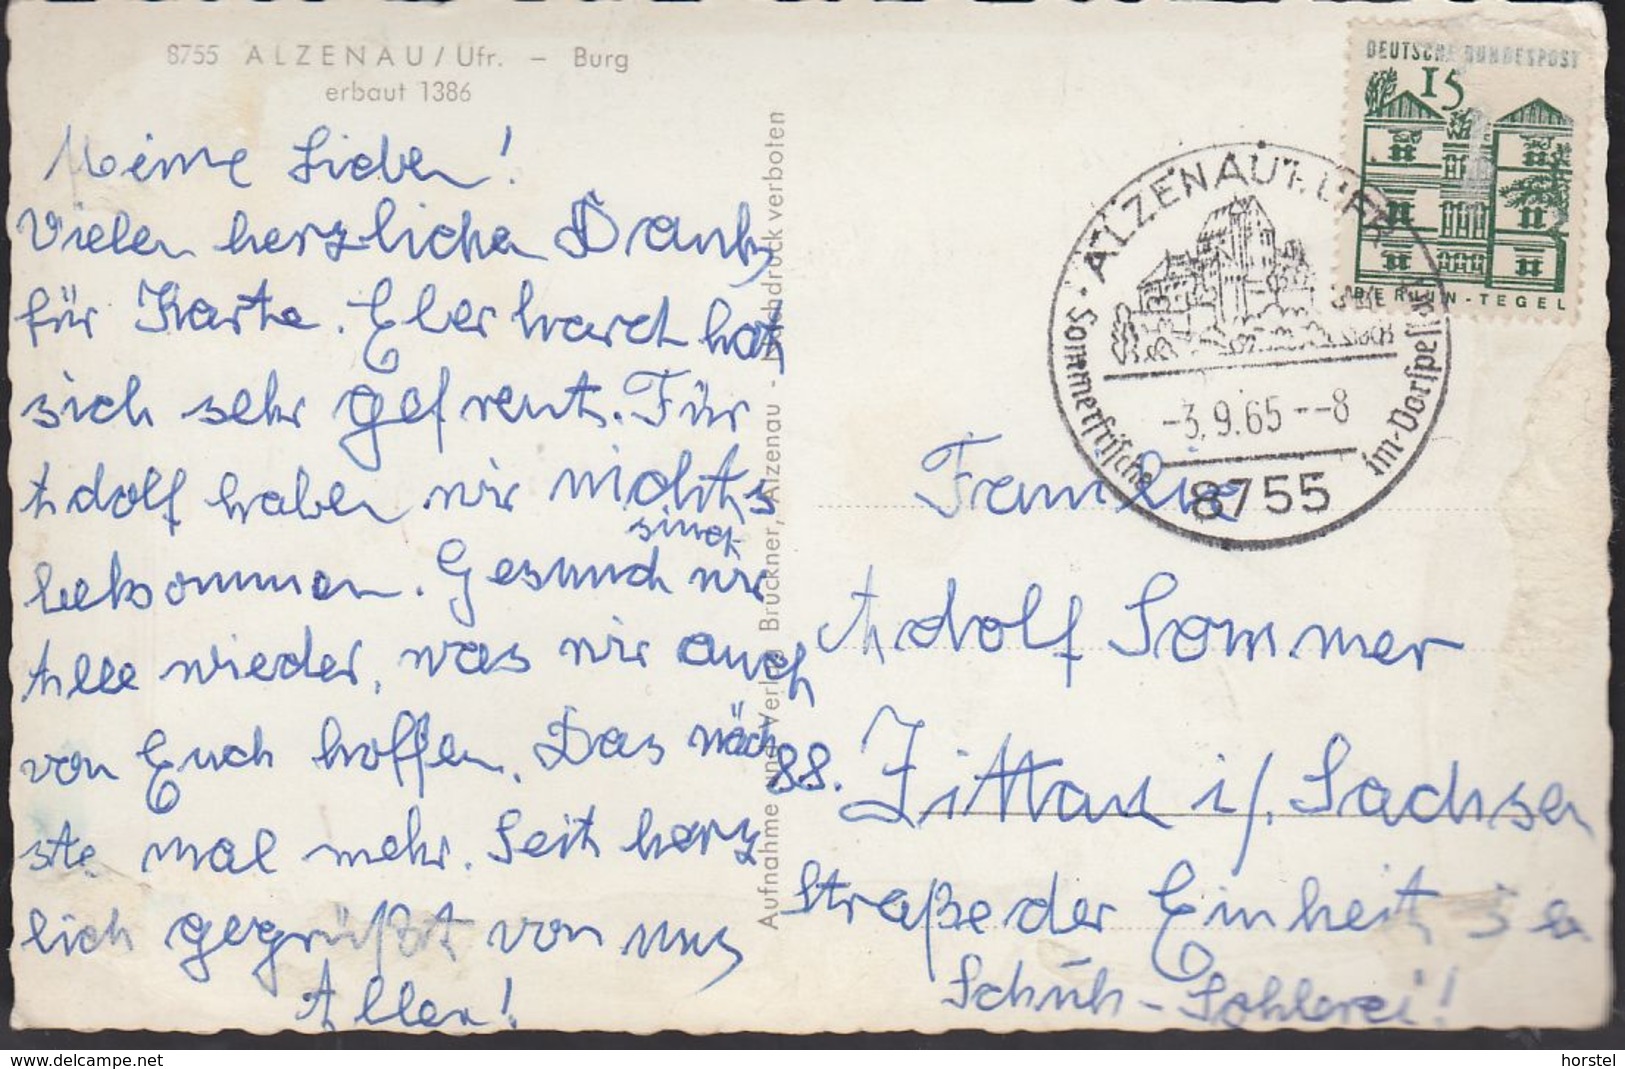 8755 ALZENAU/Ufr. – Burg
erbaut 1386
Meine Lieben!
Vielen herzlichen Dank
für Karte. Eberhardt hat
sich sehr gefreut. Für
Adolf haben wir nichts
bekommen. Gesund sind wir
Alle wieder, was wir auch
von Euch hoffen. Das näch
ste mal mehr. Seit herz
lich gegrüßt von uns
Allen!
Aufnahme und Verlag Bruckner, Alzenau - Nachdruck verboten
DEUTSCHE BUNDESPOST
15
BERLIN-TEGEL
ALZENAU I. UFR
-3.9.65--8
Sommerfrische im Vorspessart
8755
Familie
Adolf Sommer
88. Zittau i/. Sachsen
Straße der Einheit
Schuh-Sohlerei!
delcampe.net
horstel